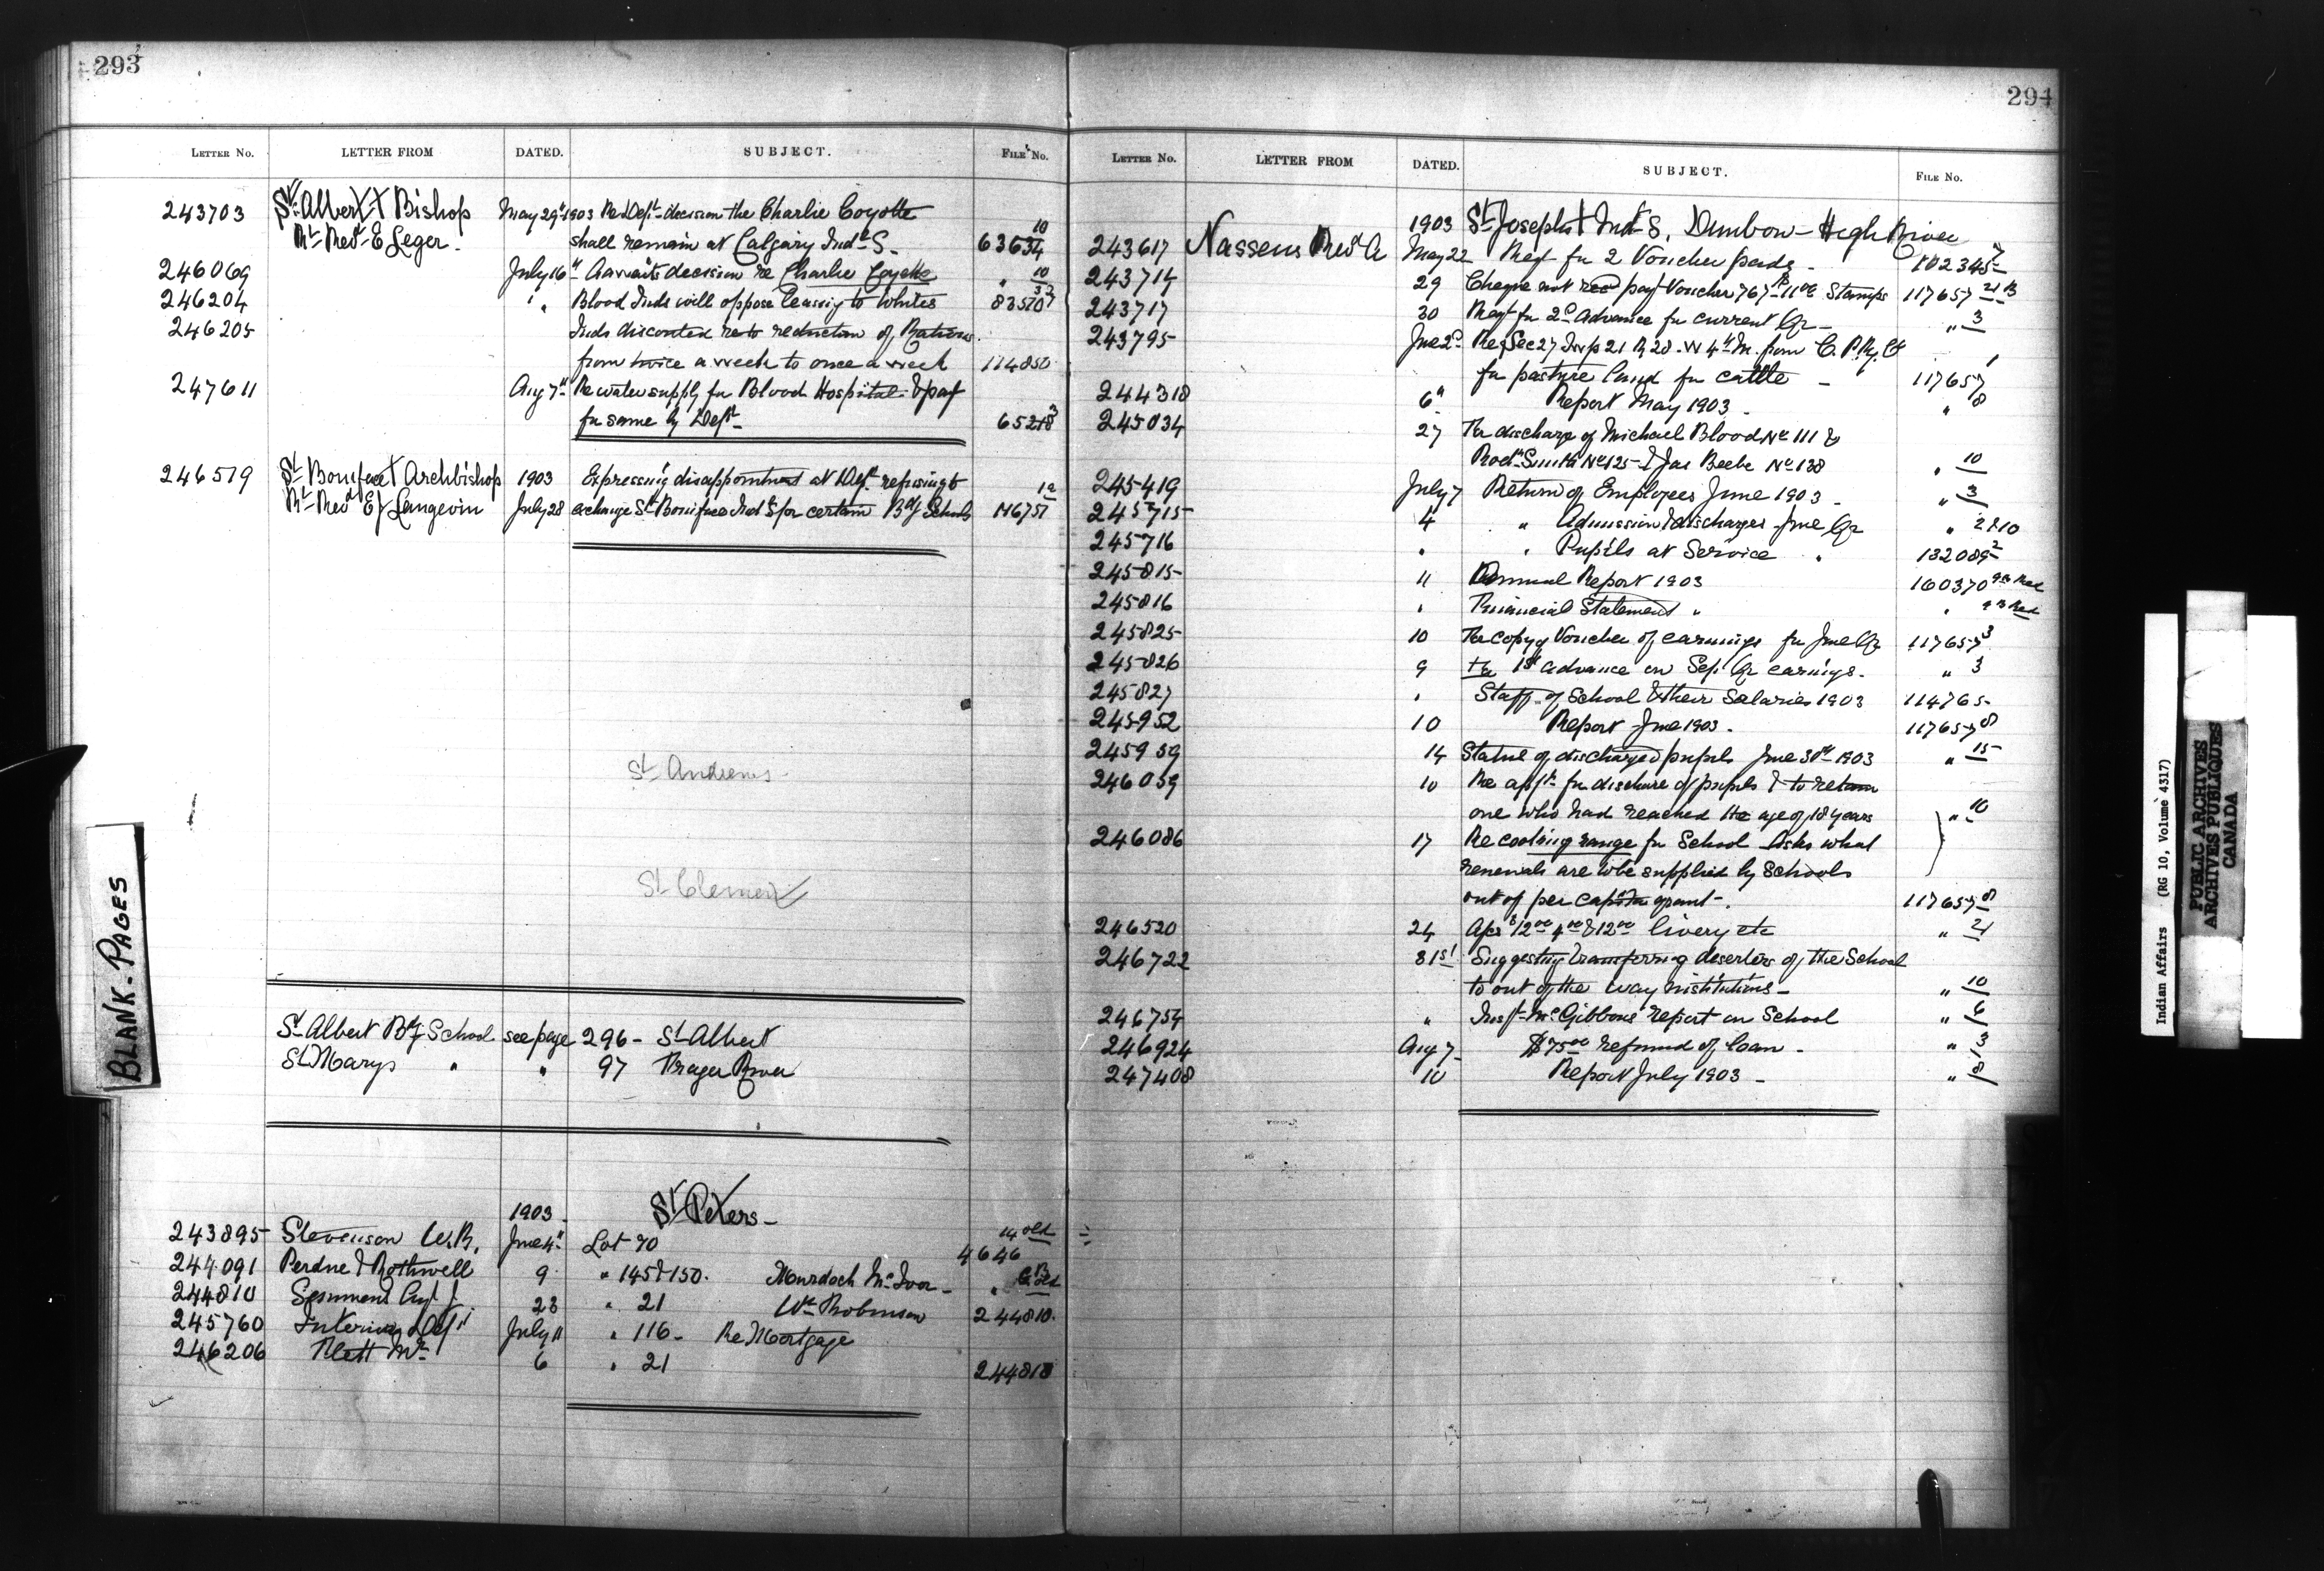 293
LETTER NO. LETTER FROM DATED. SUBJECT. FILE NO.
243703 St. Albert Bishop May 29th 1903 Re Dept decision the Charlie Coyotte
Rt Revd E Leger. shall remain at Calgary Indl S. 63634 10
246069 July 16th Awaits decision re Charlie Coyotte " 10
246204 " " Blood Inds will oppose leasing to Whites 83570
246205 Inds discontented re reduction of Rations
from twice a week to once a week 114850
247611 Aug 7th Re water supply for Blood Hospital & payt
for same by Dept 65218 3
246519 St Boniface Archbishop 1903 Expressing disappointment at Dept. refusing to
Rt Revd Langevin July 28 exchange St Boniface Ind S for certain Bdg Schools 116751
St Andrews
St Clements
St Albert Bdg School see page 296 - St Albert
St Marys " " 97 Frazer River
St Peters -
1903
243895 Stevenson W.R. June 4th Lot 70 4646 14 old
244091 Perdue & Rothwell 9 " 145 & 150. Murdoch McIvor - "
244810 23 " 21 Wm Robinson 244810.
245760 Interior Dept July 11 " 116 - Re Mortgage
246206 Mr 6 " 21 244810
BLANK-PAGES
294
LETTER NO. LETTER FROM DATED. SUBJECT. FILE NO.
1903 St Josephs Ind S, Dunbow - High River
243617 Nassens Revd A May 22 Reqt for 2 Voucher pads - 102345 7
243714 29 Cheque not recd payt Voucher 767 Stamps 117657
243717 30 Reqt for 2d Advance for current Qr - " 3
243795 June 2d Re Sec 27 Twp 21 R 28 - W 4th M. from C. P. Ry. Co
for pasture land for cattle - 117657 1
244318 6th Report May 1903 - " 8
245034 27 For discharge of Michael Blood No 111 &
Smith No 125 - & Jas Beebe No 138 " 10
245419 July 7 Return of Employees June 1903 - " 3
245715 4 " Admission & discharges June Qr " 2 & 10
245716 " " Pupils at Service " 132089 2
245815 11 Annual Report 1903 160370
245816 " Financial Statement " "
245825 10 For copy of Voucher of earnings for June Qr 117657 3
245826 9 For 1st advance on Sep. Qr earnings - " 3
245827 " Staff of School & their Salaries 1903 114765
245952 10 Report June 1903 - 117657 8
245959 14 Statue of discharged pupils June 30th 1903 " 15
246059 10 Re appln for discharge of pupils & to retain
one who had reached the age of 18 years " 10
246086 17 Re cooking range for School Asks what
renewals are to be supplied by Schools
out of per capita grant - 117657 8
246520 24 12 00 4 00 & 12 00 livery etc " 21
246722 31st Suggesting transferring deserters of the School
to out of the way institutions - " 10
246754 " Inspt McGibbons report on School " 6
246924 Aug 7 $75 00 refund of loan - " 3
247408 10 Report July 1903 - " 8
Indian Affairs (RG 10, Volume 4317)
PUBLIC ARCHIVES
ARCHIVES PUBLIQUES
CANADA